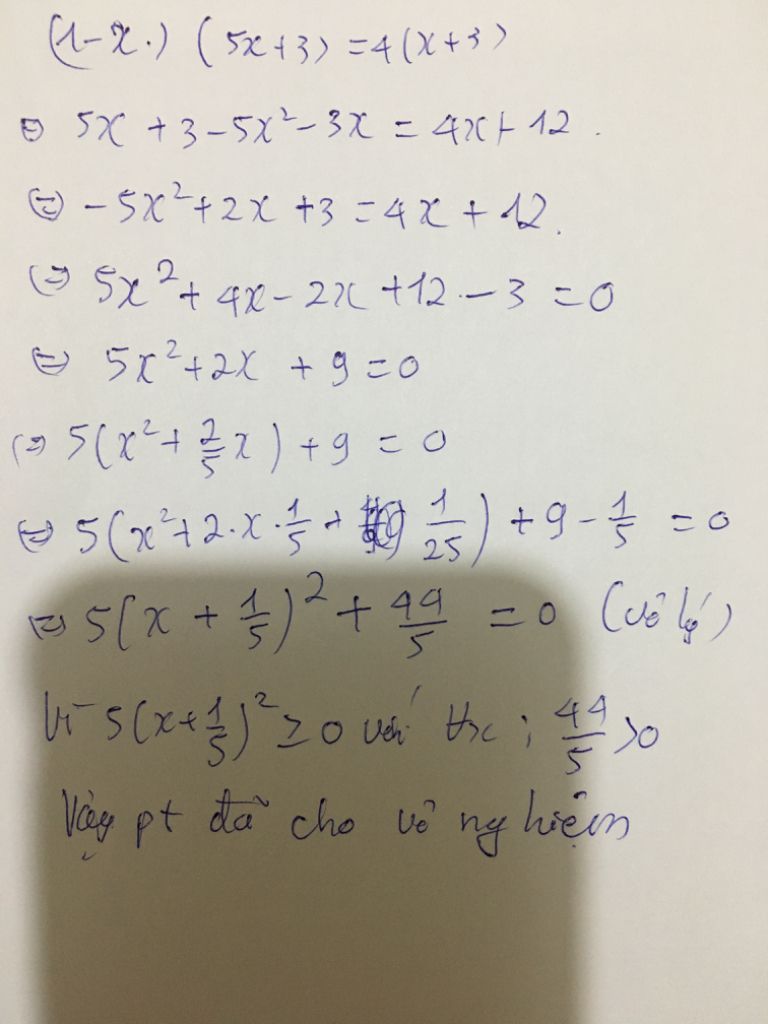 (1-x.) (5x+3) = 4(x+3)
⇔ 5x + 3 - 5x² - 3x = 4x + 12.
⇔ -5x² + 2x + 3 = 4x + 12.
⇔ 5x² + 4x - 2x + 12 - 3 = 0
⇔ 5x² + 2x + 9 = 0
⇔ 5(x² + 2/5 x) + 9 = 0
⇔ 5(x² + 2.x.1/5 + 1/25) + 9 - 1/5 = 0
⇔ 5(x + 1/5)² + 44/5 = 0 (vô lý)
Vì 5(x+1/5)² ≥ 0 với ∀x ; 44/5 > 0
Vậy pt đã cho vô nghiệm